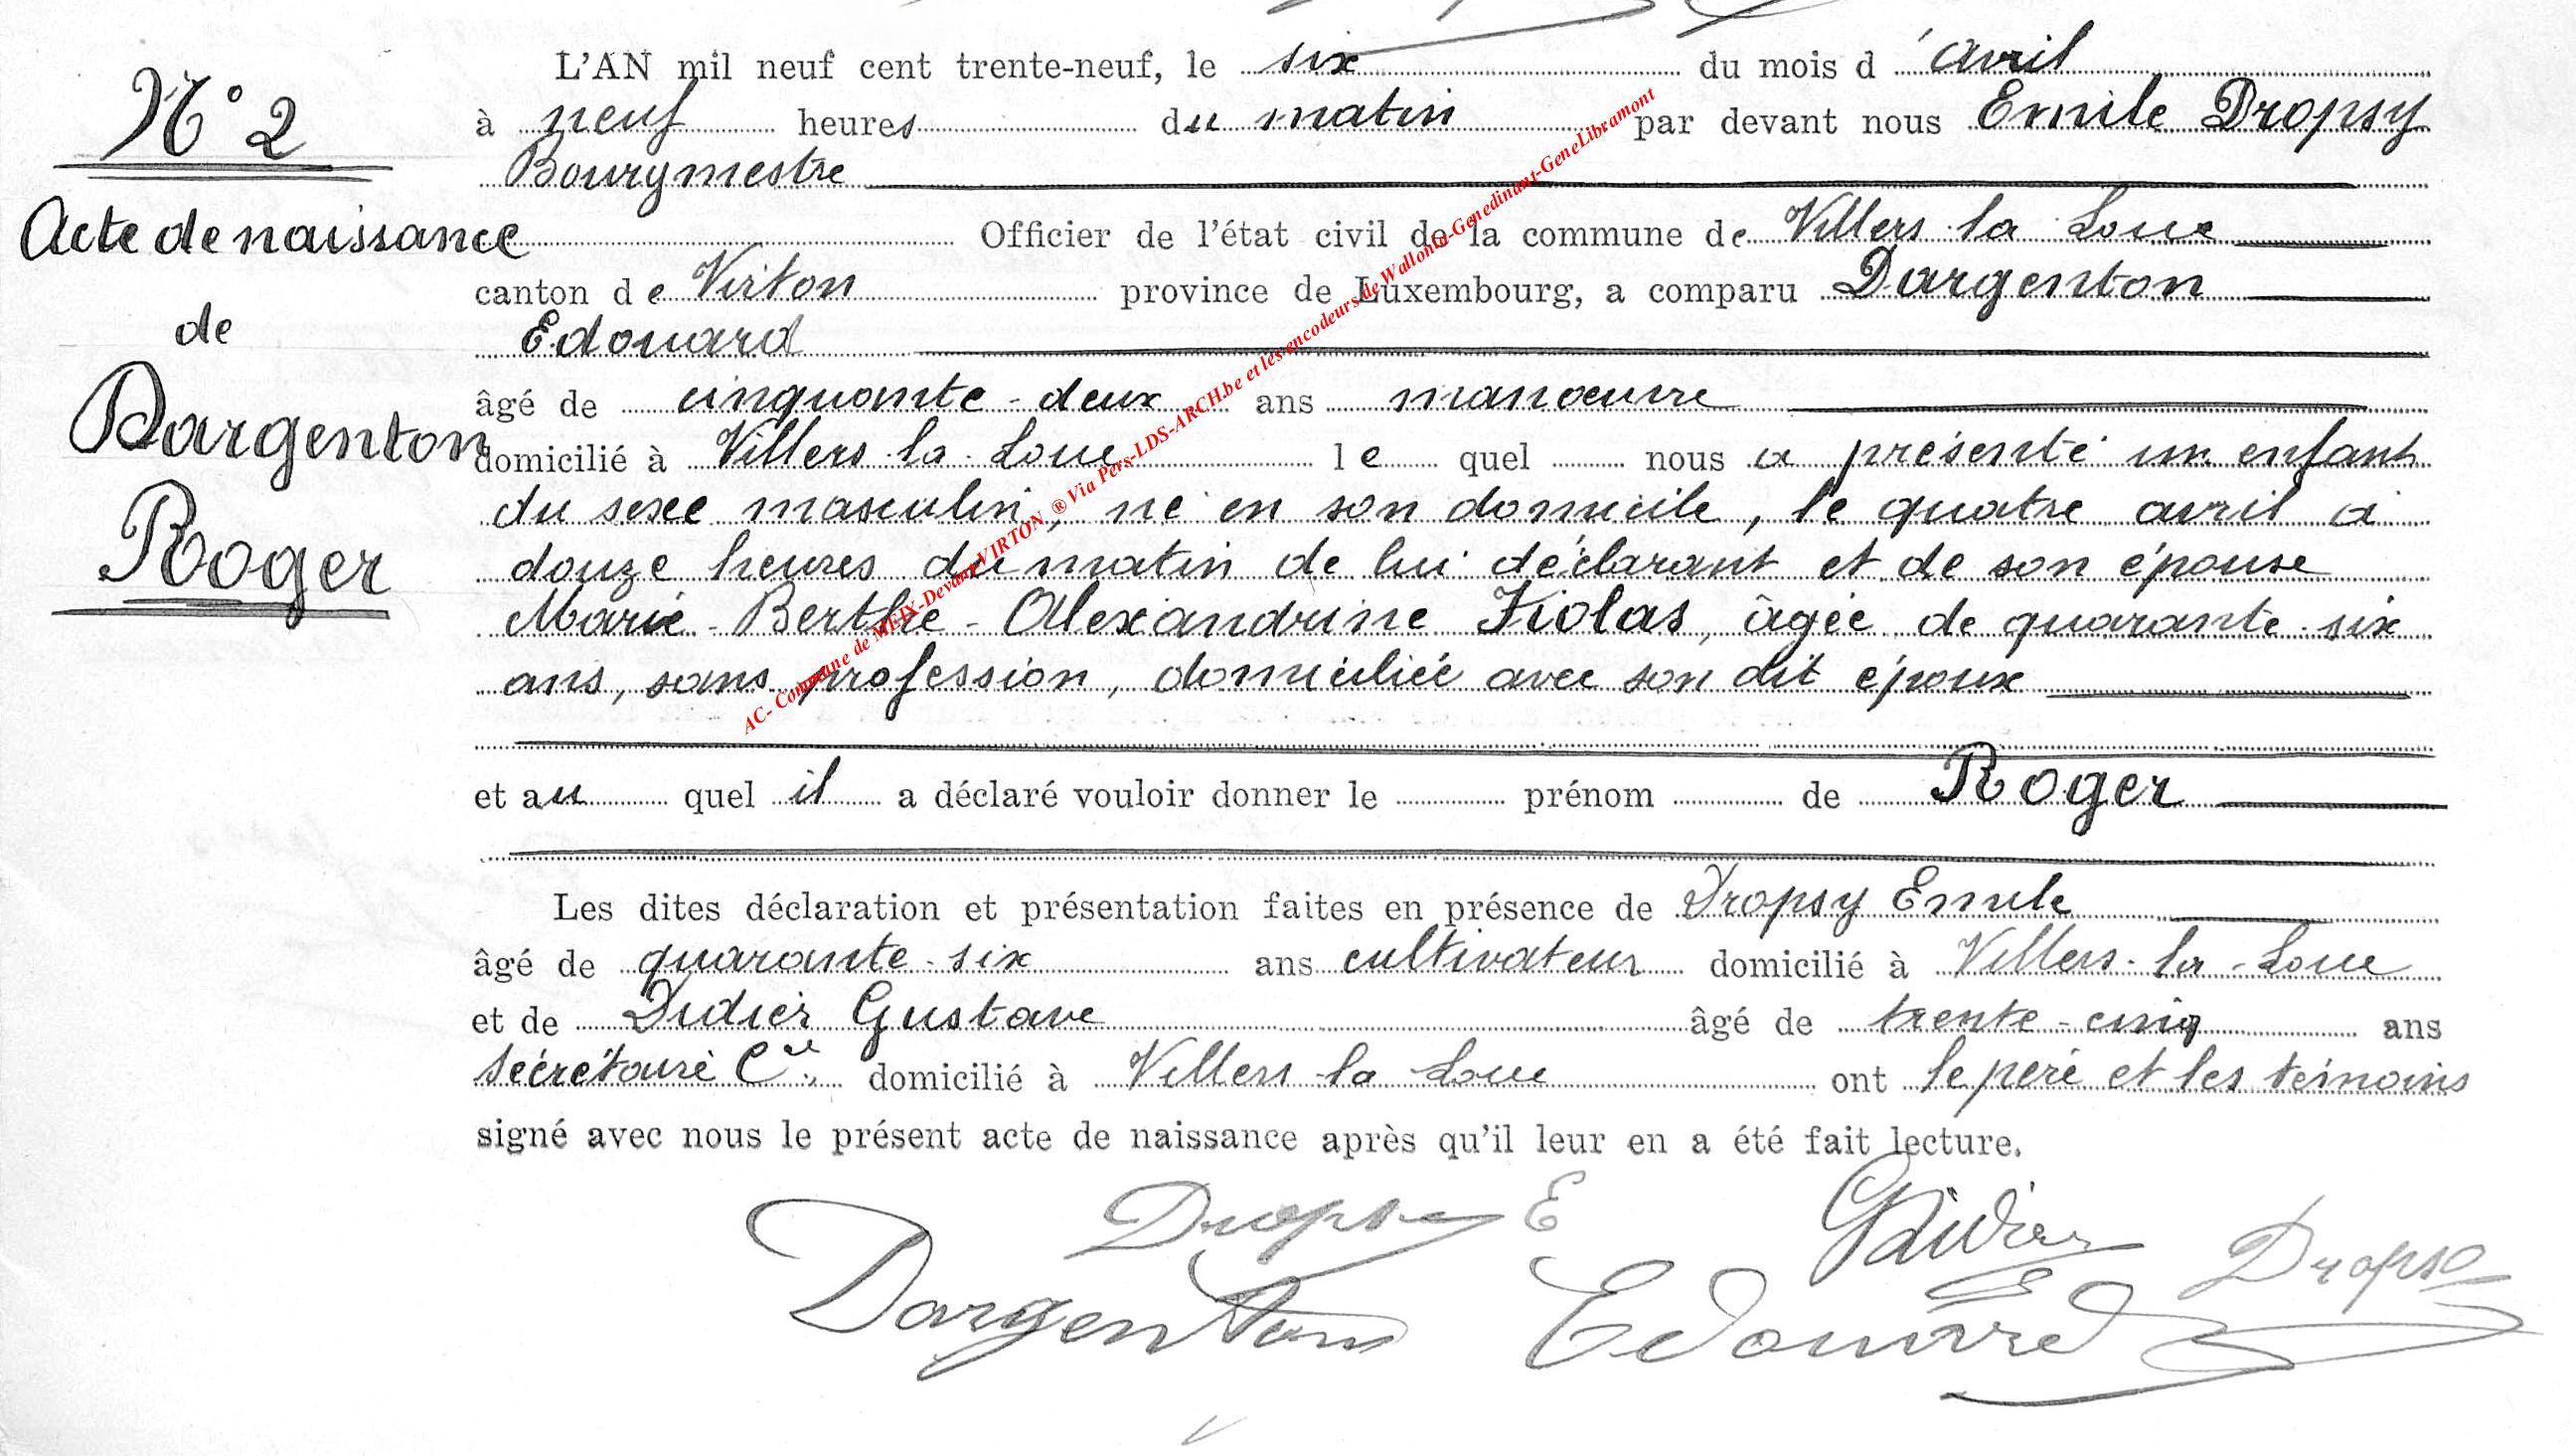 N° 2
Acte de naissance
de
Dargenton
Roger
L'AN mil neuf cent trente-neuf, le six du mois d'avril
à neuf heures du matin par devant nous Emile Dropsy
Bourgmestre
Officier de l'état civil de la commune de Villers-la-Loue
canton de Virton province de Luxembourg, a comparu Dargenton
Edouard
âgé de cinquante-deux ans manoeuvre
domicilié à Villers-la-Loue lequel nous a présenté un enfant
du sexe masculin, né en son domicile, le quatre avril à
douze heures du matin de lui déclarant et de son épouse
Marie-Berthe-Alexandrine Fiolas, âgée de quarante-six
ans, sans profession, domiciliée avec son dit époux
et au quel il a déclaré vouloir donner le prénom de Roger
Les dites déclaration et présentation faites en présence de Dropsy Emile
âgé de quarante-six ans cultivateur domicilié à Villers-la-Loue
et de Didier Gustave âgé de trente-cinq ans
secrétaire Cal. domicilié à Villers-la-Loue ont le père et les témoins
signé avec nous le présent acte de naissance après qu'il leur en a été fait lecture.
Dropsy E
GDidier
E Dropsy
Dargenton Edouard
AC- Commune de MEIX-Devant-VIRTON ® Via Pers-LDS-ARCH.be et les encodeurs de Wallonia-Genedinant-GeneLibramont